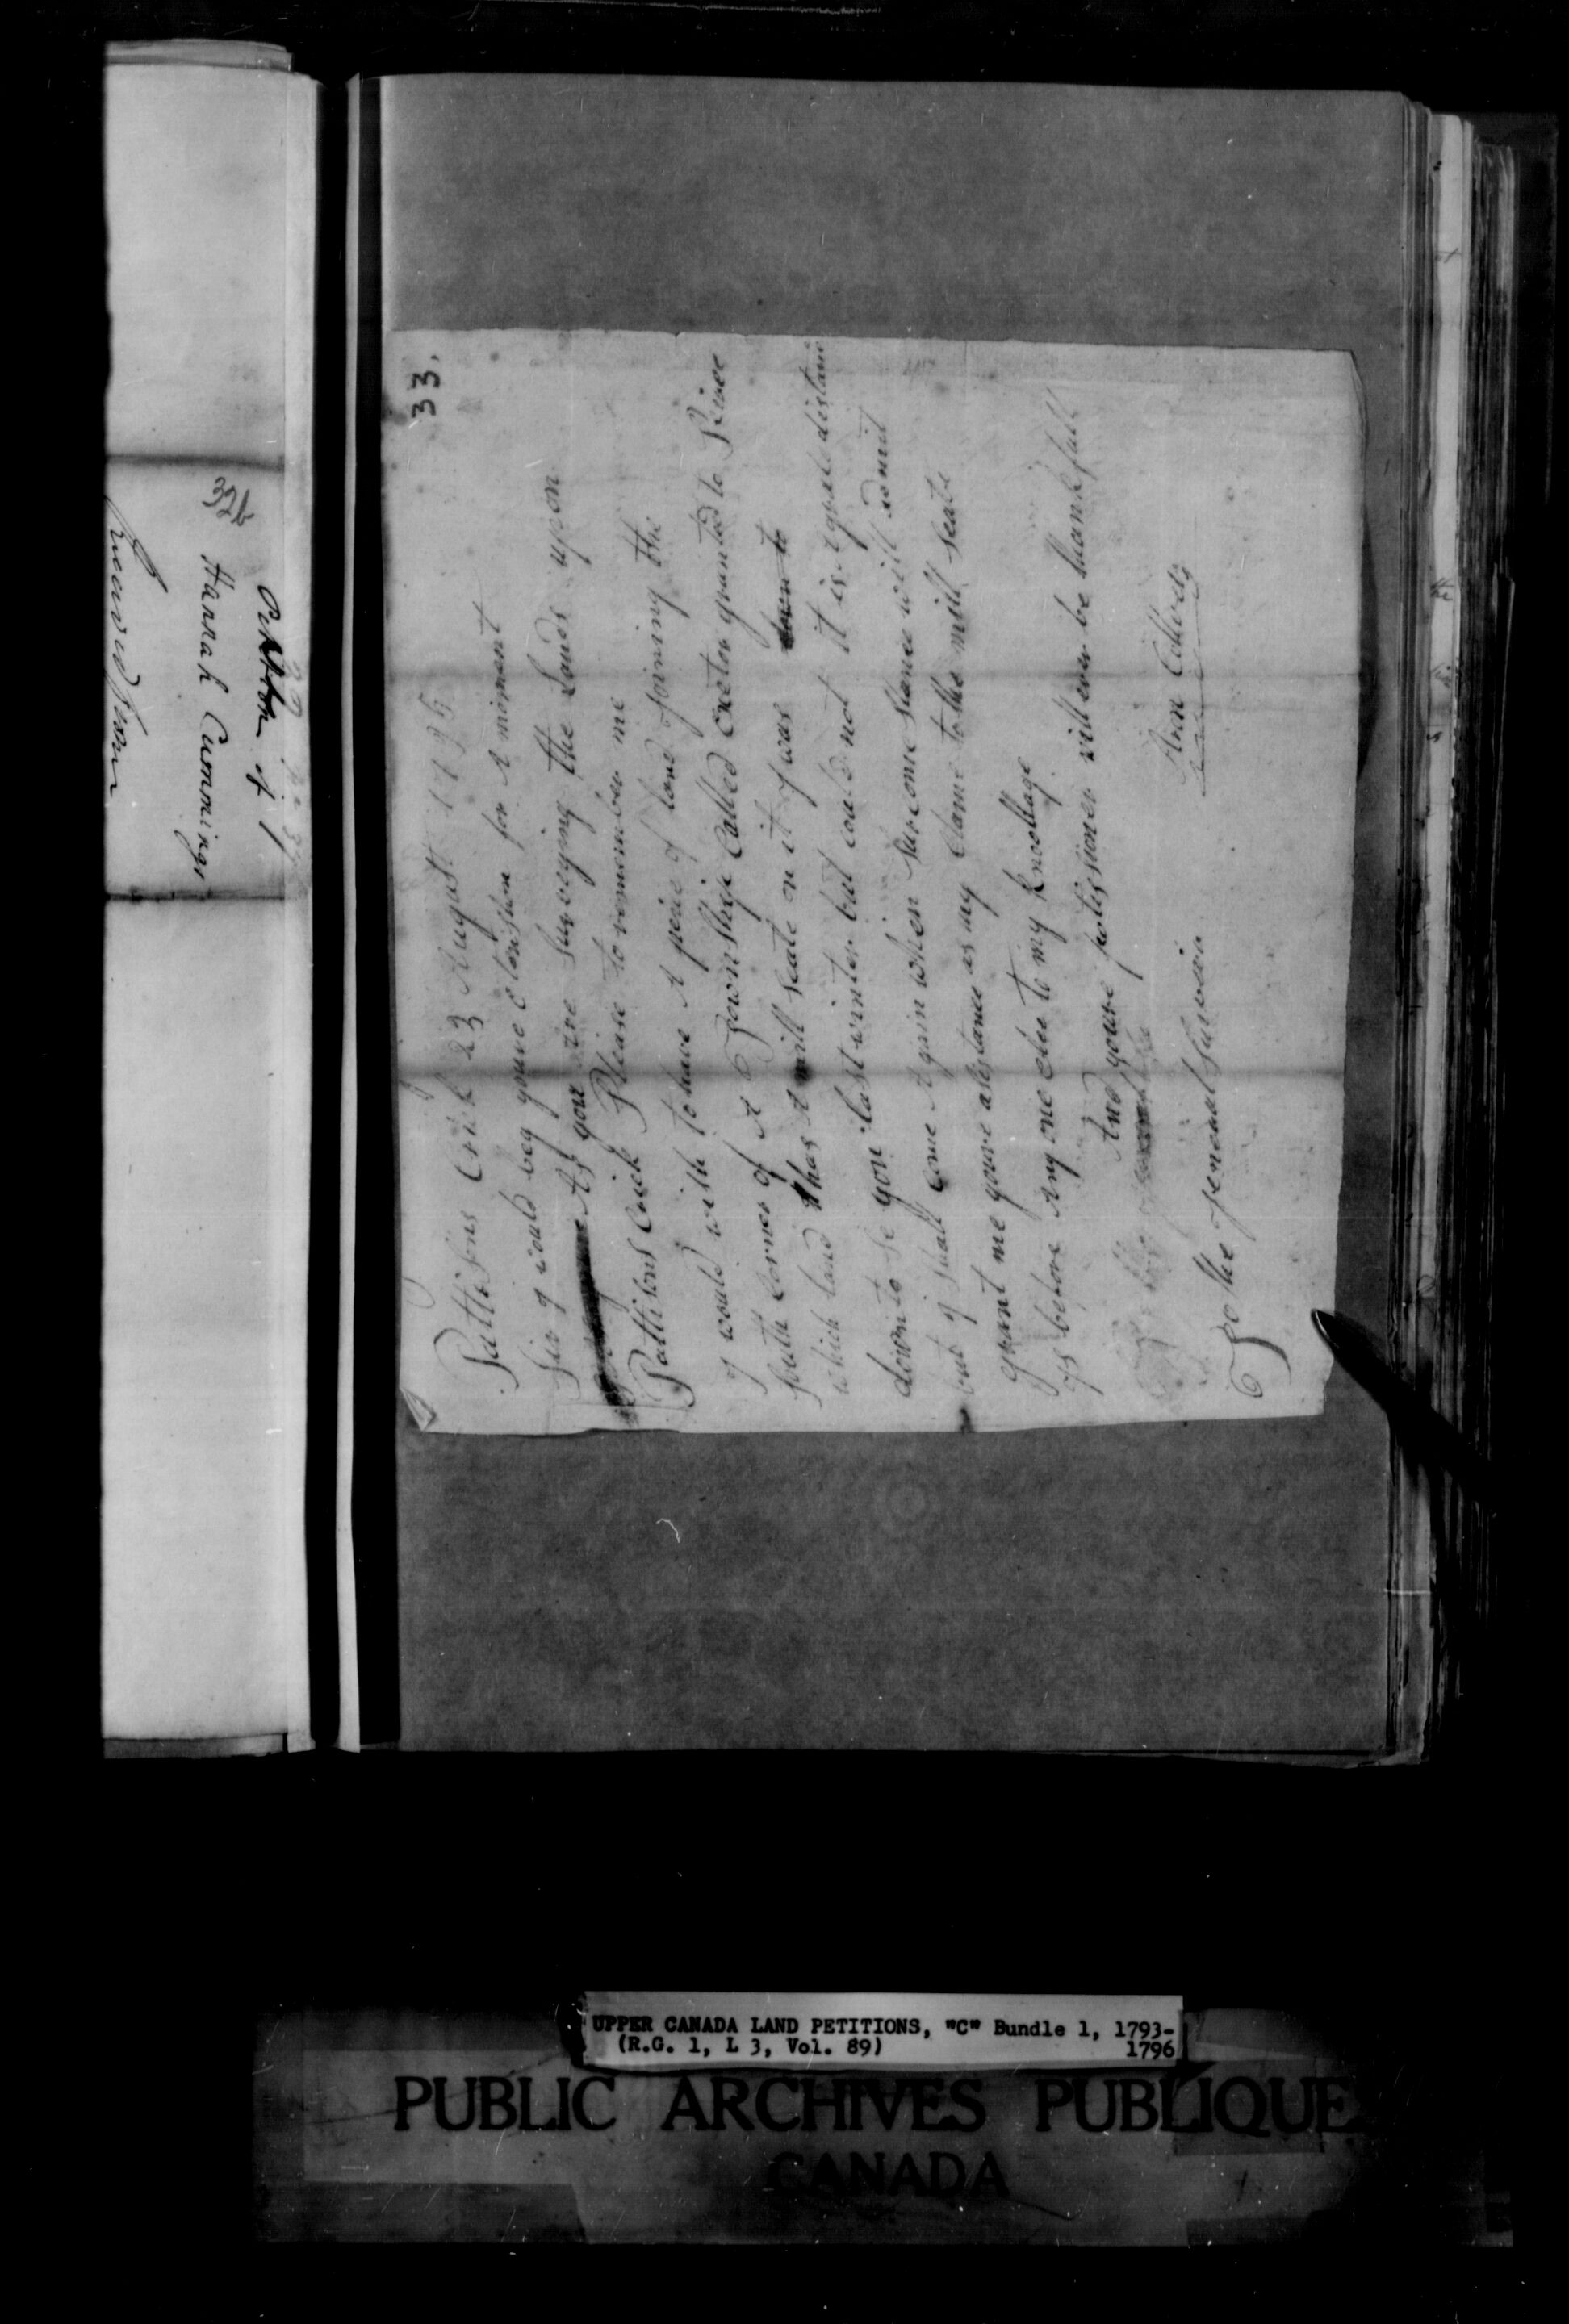 Petition of
Hannah Cummings
32b
33.
Pattisons Crik 23 August 1795
Sir I would beg youre Etenshon for A moment
As you are Surveying the Lands upon
Pattisons Crick Please to remember me
I would wish to have A peice of land Joining the
South Corner of A Township Called Exetor granted to
which land has A mill Seate on it I was down to
down to Se you last winter but could not it is a
but I Shall come Again when Surcomestance will admit
grant me youre asistance as my Clame to the mill Seate
is before Any one else to my Knollage
And youre petissioner will ever be thankfull
Ann
To the general Survair
UPPER CANADA LAND PETITIONS, "C" Bundle 1, 1793-
(R.G. 1, L 3, Vol. 89) 1796
PUBLIC ARCHIVES PUBLIQUE
CANADA